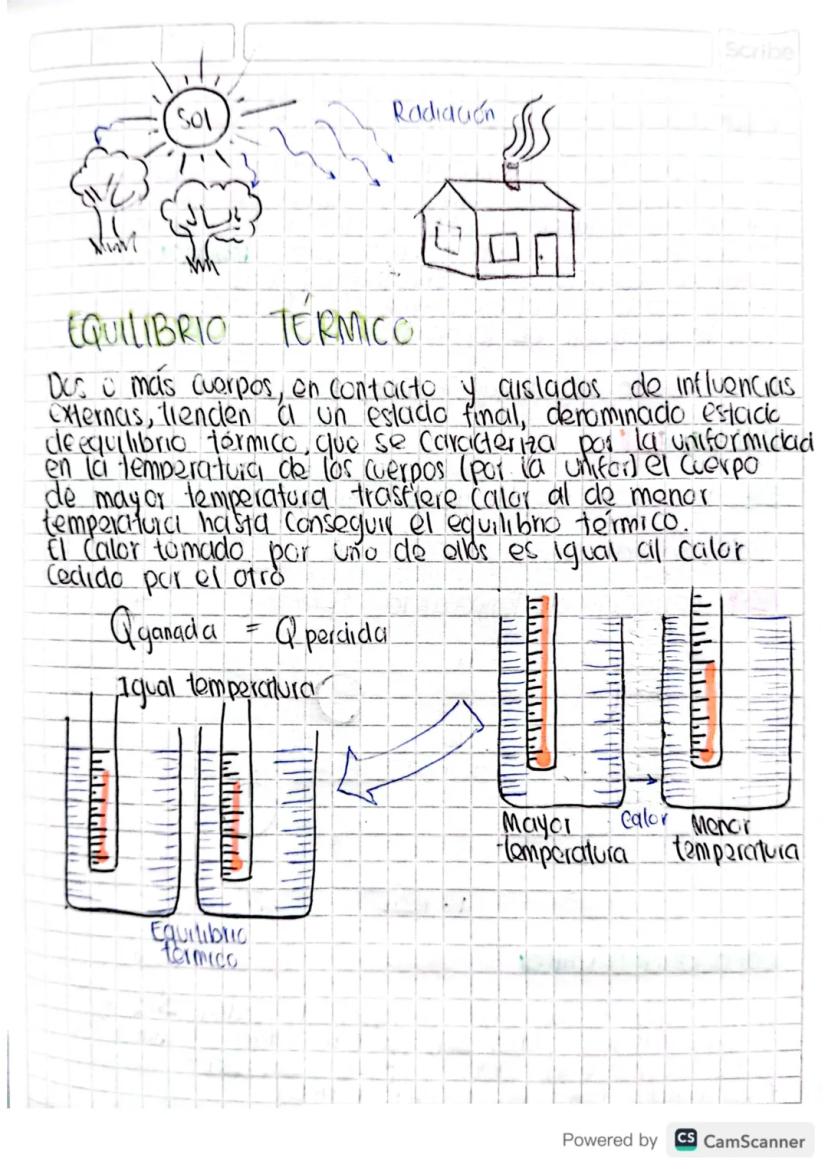 Scribe
SOl
Radiación
EQUILIBRIO TÉRMICO
Dos o más cuerpos, en contacto y aislados de influencias
externas, tienden a un estado final, denominado estado
de equilibrio térmico, que se caracteriza por la uniformidad
en la temperatura de los cuerpos (por la unifor) el cuerpo
de mayor temperatura trasfiere calor al de menor
temperatura hasta conseguir el equilibrio térmico.
El calor tomado por uno de ellos es igual al calor
cedido por el otro
Qganada = Q perdida
Igual temperatura
Mayor
temperatura
calor
Menor
temperatura
Equilibrio
térmico
Powered by CS CamScanner